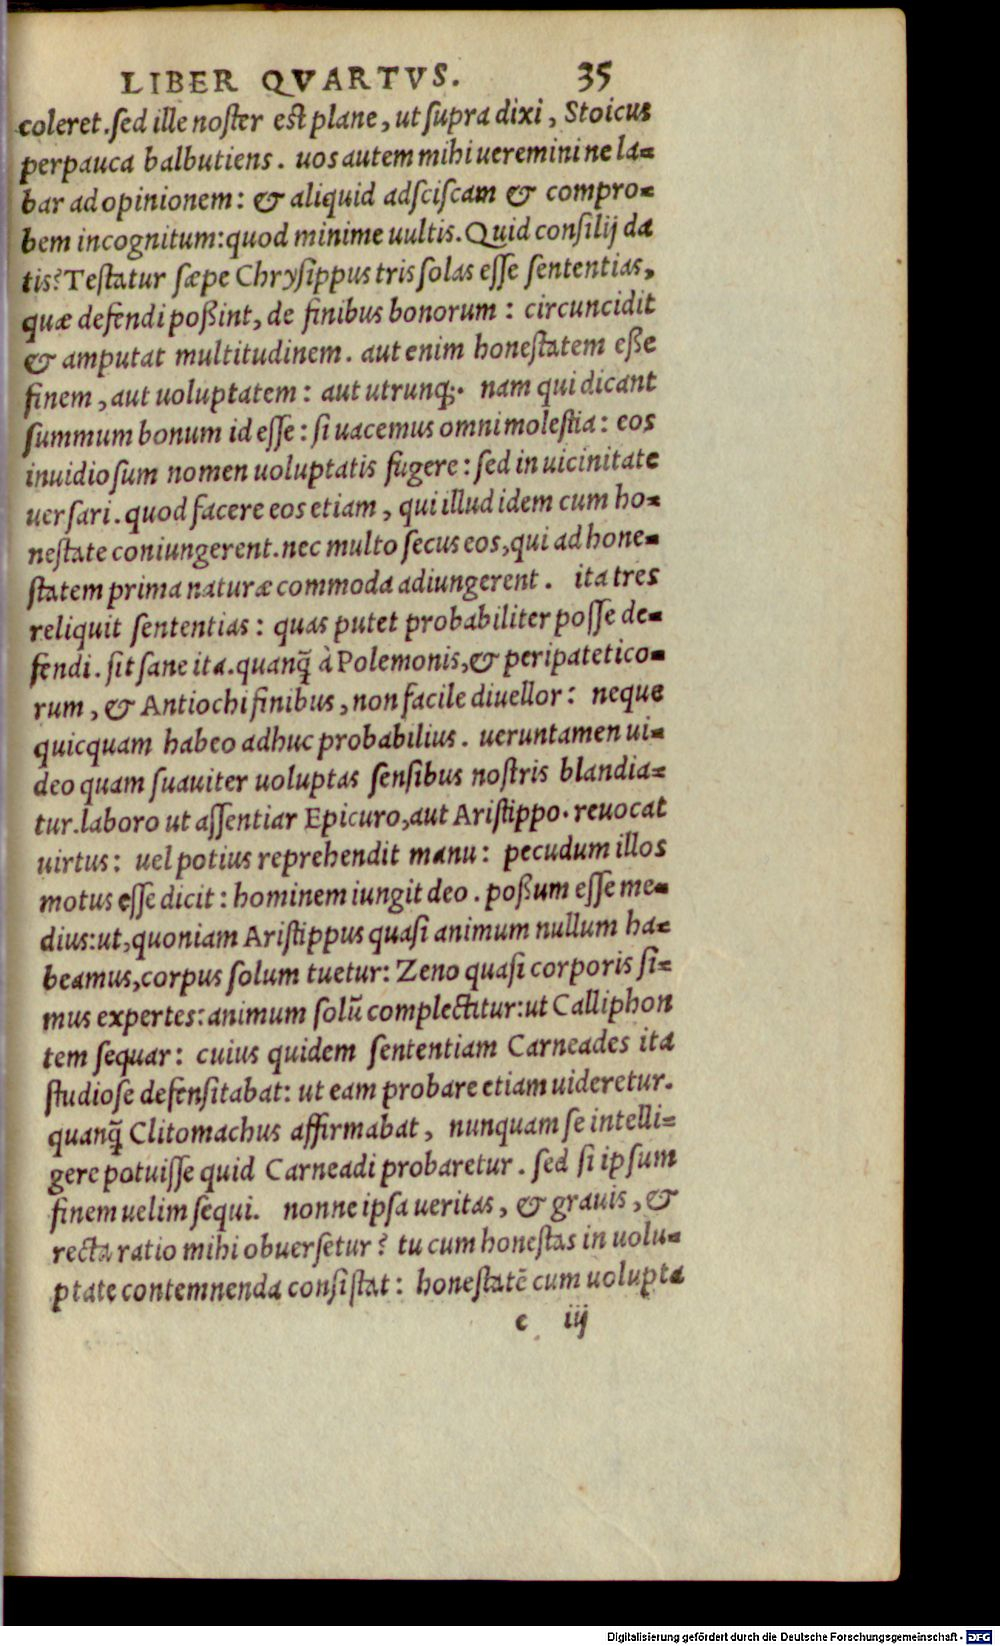 LIBER QVARTVS. 35
coleret. sed ille noster est plane, ut supra dixi, Stoicus
perpauca balbutiens. uos autem mihi ueremini ne la=
bar ad opinionem: & aliquid adsciscam & compro=
bem incognitum: quod minime uultis. Quid consilij da
tis? Testatur sæpe Chrysippus tris solas esse sententias,
quæ defendi poßint, de finibus bonorum: circuncidit
& amputat multitudinem. aut enim honestatem eße
finem, aut uoluptatem: aut utrunq;. nam qui dicant
summum bonum id esse: si uacemus omni molestia: eos
inuidiosum nomen uoluptatis fugere: sed in uicinitate
uersari. quod facere eos etiam, qui illud idem cum ho=
nestate coniungerent. nec multo secus eos, qui ad hone=
statem prima naturæ commoda adiungerent. ita tres
reliquit sententias: quas putet probabiliter posse de=
fendi. sit sane ita. quanq̃ à Polemonis, & peripatetico=
rum, & Antiochi finibus, non facile diuellor: neque
quicquam habeo adhuc probabilius. ueruntamen ui=
deo quam suauiter uoluptas sensibus nostris blandia=
tur. laboro ut assentiar Epicuro, aut Aristippo. reuocat
uirtus: uel potius reprehendit manu: pecudum illos
motus esse dicit: hominem iungit deo. poßum esse me=
dius: ut, quoniam Aristippus quasi animum nullum ha=
beamus, corpus solum tuetur: Zeno quasi corporis si=
mus expertes: animum solũ complectitur: ut Calliphon
tem sequar: cuius quidem sententiam Carneades ita
studiose defensitabat: ut eam probare etiam uideretur.
quanq̃ Clitomachus affirmabat, nunquam se intelli=
gere potuisse quid Carneadi probaretur. sed si ipsum
finem uelim sequi. nonne ipsa ueritas, & grauis, &
recta ratio mihi obuersetur? tu cum honestas in uolu=
ptate contemnenda consistat: honestatē cum uolupta
c iij
Digitalisierung gefördert durch die Deutsche Forschungsgemeinschaft - DFG